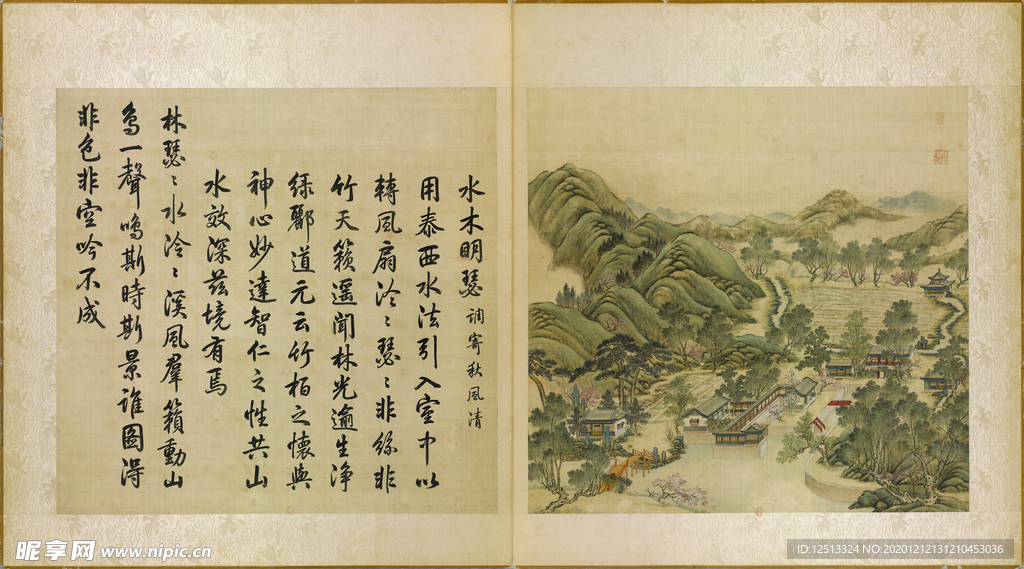 水木明瑟 调寄秋風清
用泰西水法引入室中以
轉風扇泠〻瑟〻非絲非
竹天籟遥聞林光逾生淨
緑酈道元云竹柏之懷與
神心妙達智仁之性共山
水效深兹境有焉
林瑟〻水泠〻溪風羣籟動山
鳥一聲鳴斯時斯景誰圖得
非色非空吟不成
昵享网 www.nipic.cn
ID:12513324 NO:20201212131210453036